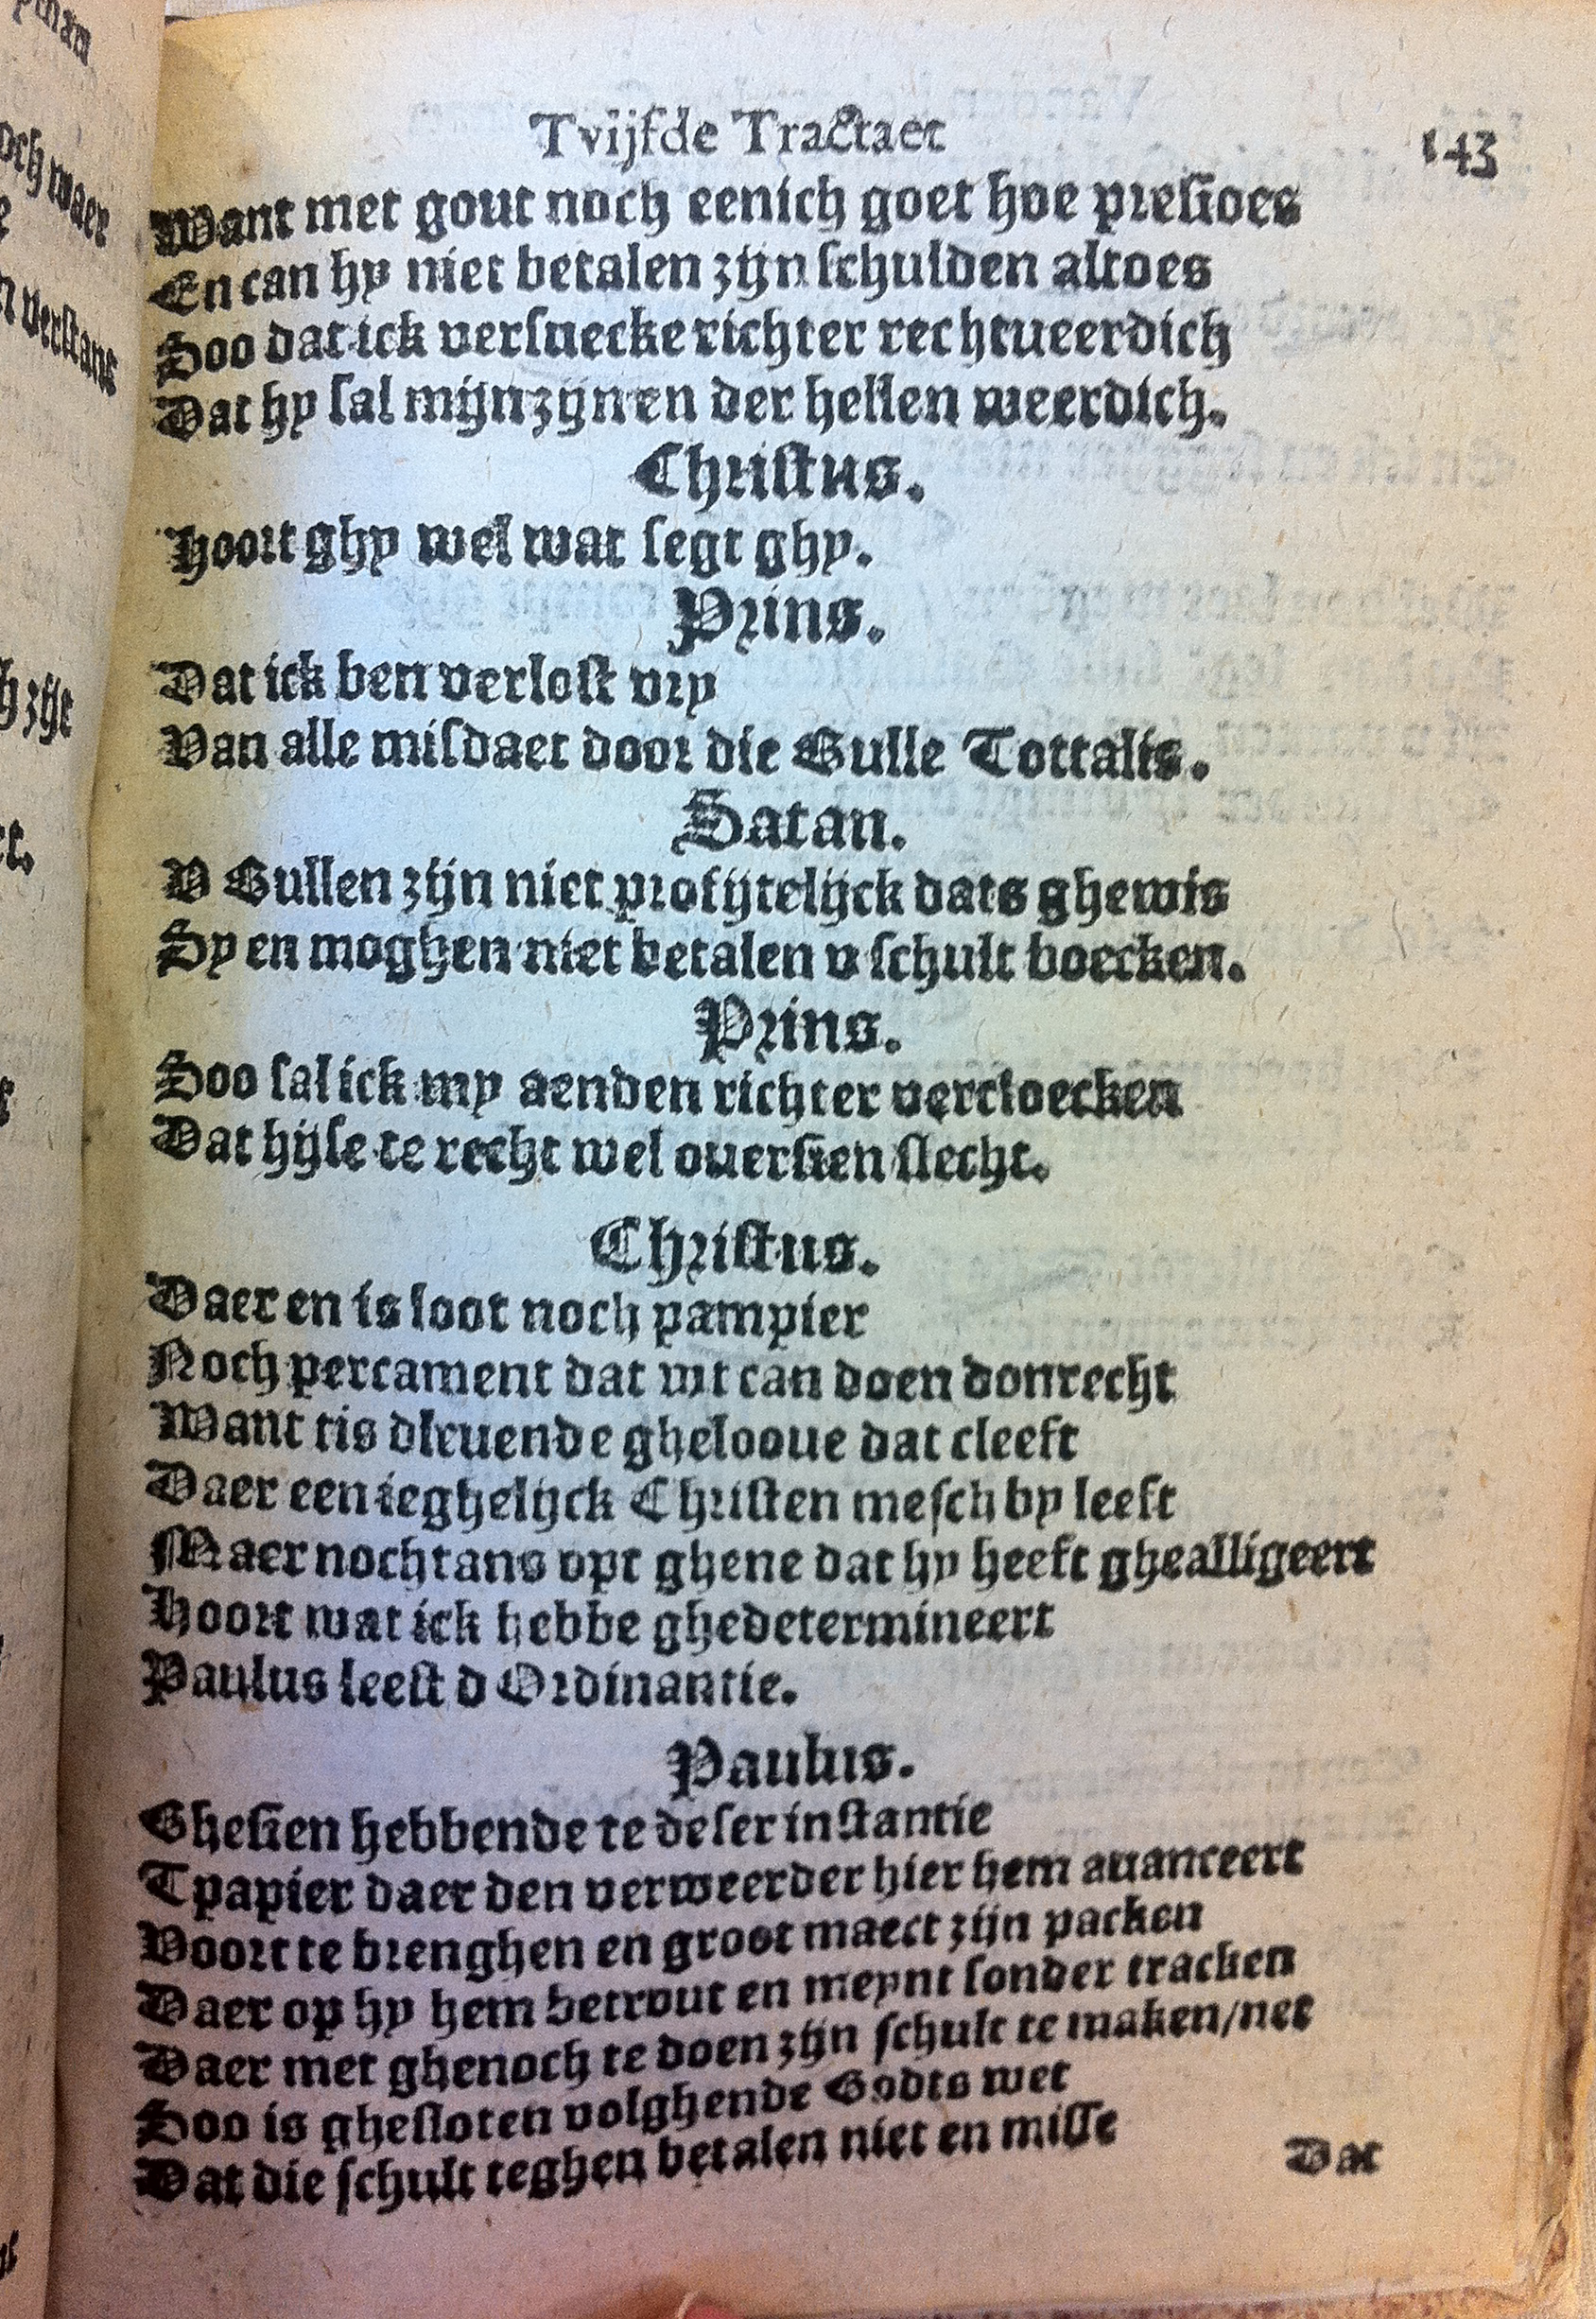 Tvijfde Tractaet 143
Want met gout noch eenich goet hoe presioes
En can hy niet betalen zijn schulden altoes
Soo dat ick versuecke richter rechtueerdich
Dat hy sal mijn zijn en der hellen weerdich.
Christus.
Hoort ghy wel wat segt ghy.
Prins.
Dat ick ben verlost vry
Van alle misdaet door die Bulle Tottalis.
Satan.
V Bullen zijn niet profijtelijck dats ghewis
Sy en moghen niet betalen v schult boecken.
Prins.
Soo sal ick my aenden richter vercloecken
Dat hijse te recht wel ouersien slecht.
Christus.
Daer en is loot noch pampier
Noch percament dat uit can doen donrecht
Want tis dleuende ghelooue dat cleeft
Daer een ieghelijck Christen mesch by leeft
Maer nochtans opt ghene dat hy heeft ghealligeert
Hoort wat ick hebbe ghedetermineert
Paulus leest d Ordinantie.
Paulus.
Ghesien hebbende te deser instantie
Tpapier daer den verweerder hier hem auanceert
Voort te brenghen en groot maect zijn packen
Daer op hy hem betrout en meynt sonder tracken
Daer met ghenoch te doen zijn schult te maken/net
Soo is ghesloten volghende Godts wet
Dat die schult teghen betalen niet en misse
Dat
och waer
n verstans
h zijt